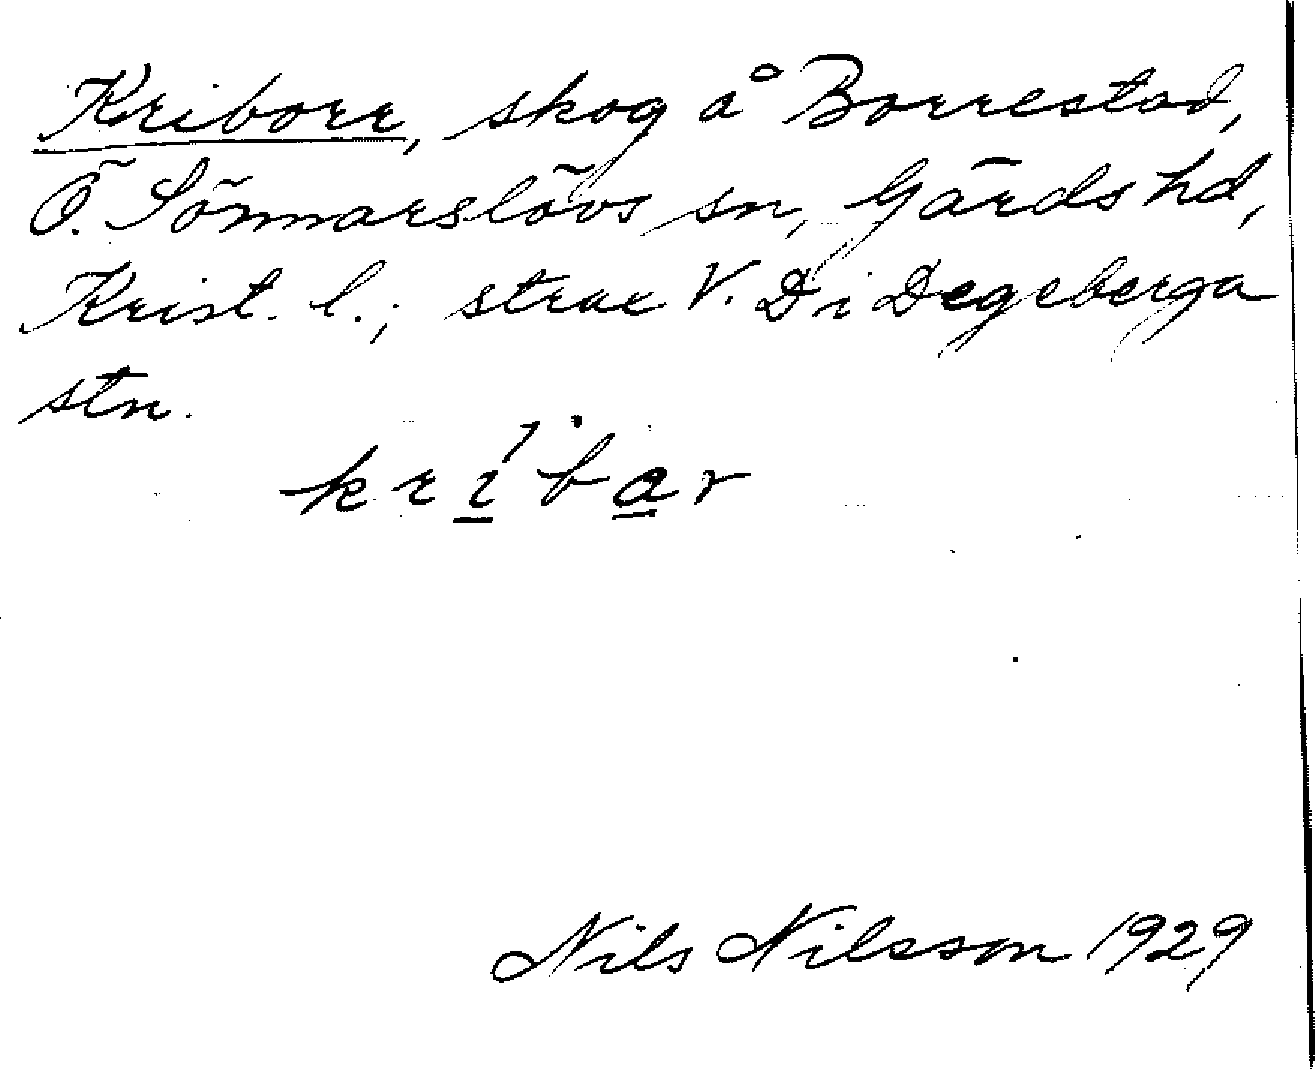 Kriborr, skog å Borrestad,
Ö. Sönnarslövs sn, Gärds hd,
Krist. l.; strax V. Degeberga
stn.
kríbar
Nils Nilsson 1929